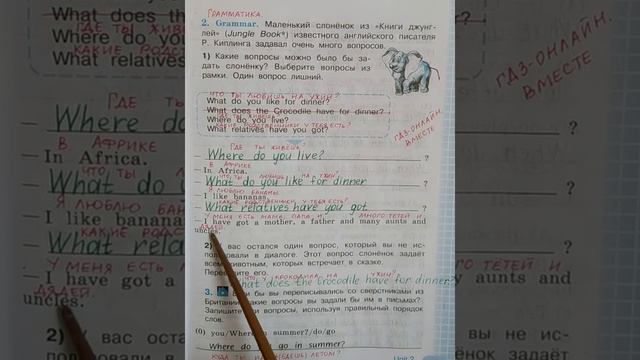 ГРАММАТИКА.
2. Grammar. Маленький слонёнок из «Книги джунг-
лей» (Jungle Book*) известного английского писателя
Р. Киплинга задавал очень много вопросов.
1) Какие вопросы можно было бы за-
дать слонёнку? Выберите вопросы из
рамки. Один вопрос лишний.
ЧТО ТЫ ЛЮБИШЬ НА УЖИН?
What do you like for dinner?
What does the Crocodile have for dinner?
ГДЕ ТЫ ЖИВЁШЬ?
Where do you live?
КАКИЕ РОДСТВЕННИКИ У ТЕБЯ ЕСТЬ?
What relatives have you got?
ГДЗ-ОНЛАЙН.
ВМЕСТЕ
ГДЕ ТЫ ЖИВЁШЬ?
— Where do you live? ?
В АФРИКЕ
— In Africa.
ЧТО ТЫ ЛЮБИШЬ НА УЖИН?
— What do you like for dinner ?
Я ЛЮБЛЮ БАНАНЫ.
— I like bananas.
КАКИЕ РОДСТВЕННИКИ У ТЕБЯ ЕСТЬ?
— What relatives have you got ?
У МЕНЯ ЕСТЬ МАМА, ПАПА И МНОГО ТЕТЕЙ И
— I have got a mother, a father and many aunts and
ДЯДЕЙ.
uncles.
2) У вас остался один вопрос, который вы не ис-
пользовали в диалоге. Этот вопрос слонёнок задаёт
всем животным, которых встречает в сказке.
Переведите его.
ЧТО У КРОКОДИЛА НА УЖИН?
What does the Crocodile have for dinner?
3. Если бы вы переписывались со сверстниками из
Британии, какие вопросы вы задали бы им в письмах?
Запишите эти вопросы, используя правильный порядок
слов.
(0) you/Where/in summer?/do/go
Where do you go in summer?
КУДА ТЫ ИДЕШЬ (ЕДЕШЬ) ЛЕТОМ?
Unit 2
What does the
ГДЕ ТЫ ЖИВЁШЬ
Where do you
КАКИЕ РОДСТ
What relatives
ГДЕ ТЫ
— Where do
В АФРИКЕ
— In Africa.
ЧТО ТЫ
— What do
Я ЛЮБЛЮ
— I like banana
КАКИЕ РОД
— What rela
У МЕНЯ ЕСТЬ
— I have got a
ДЯДЕЙ.
uncles.
2) У
ГДЗ-ОНЛАЙН.
ВМЕСТЕ
?
?
?
ТЁТЕЙ И
aunts and
вы не ис-